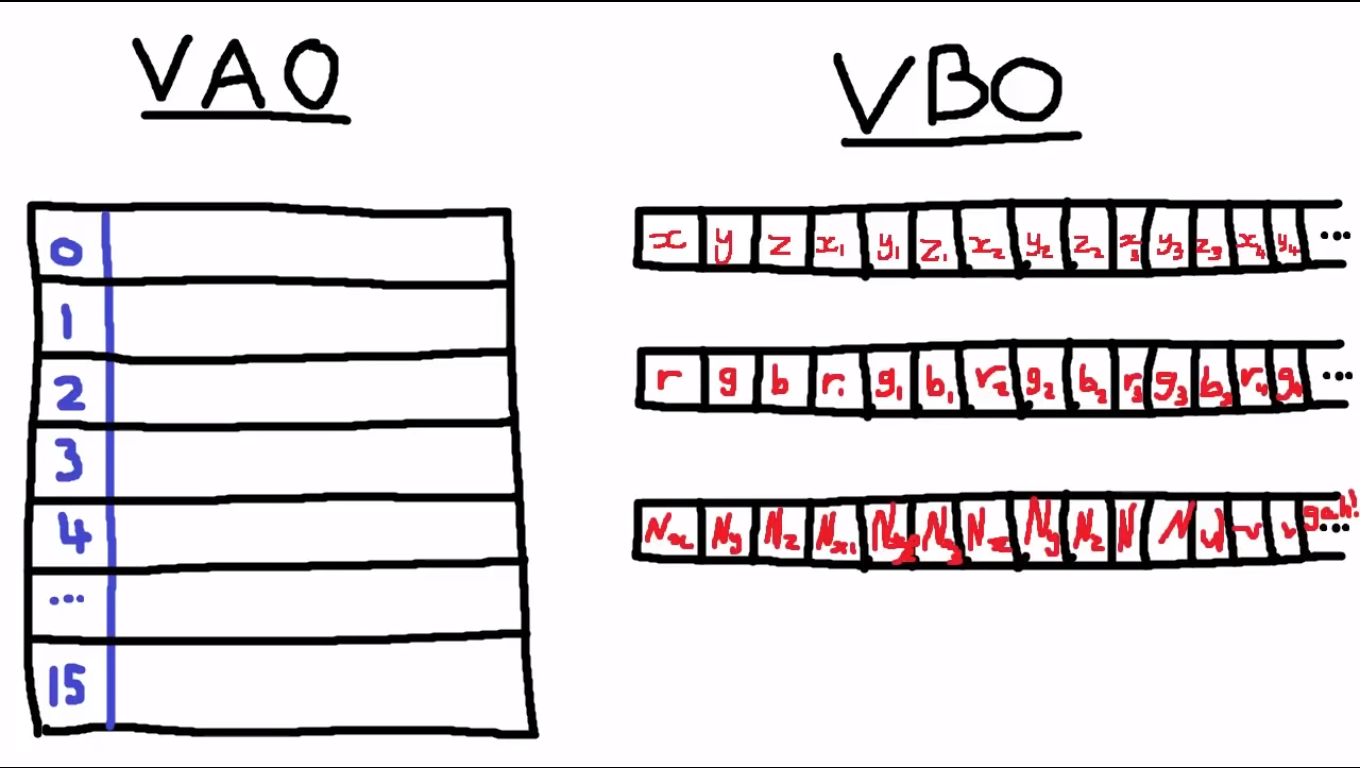 VAO
VBO
0
1
2
3
4
...
15
x y z x₁ y₁ z₁ x₂ y₂ z₂ x₃ y₃ z₃ x₄ y₄ ...
r g b r₁ g₁ b₁ r₂ g₂ b₂ r₃ g₃ b₃ r₄ g₄ ...
Nx Ny Nz Nx₁ Nx Ny Nz N N gah! ...